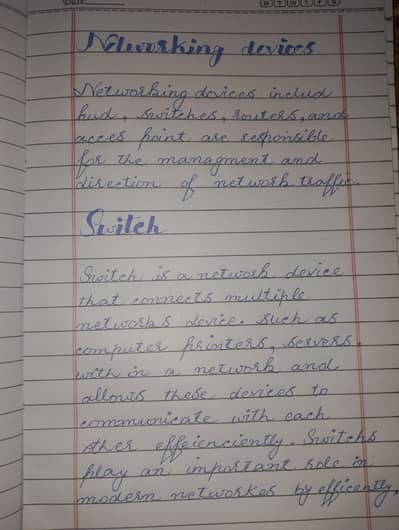 Date
M T W T F S
Networking devices
Networking devices includ
hud, switches, routers, and
acces point are responsible
for the managment and
direction of network traffic.
Switch
Switch is a network device
that connects multiple
networks device. such as
computer printers, servers.
with in a network and
allows these devices to
communicate with each
other effeienciently. Switchs
play an important role in
modern networkes by efficently,